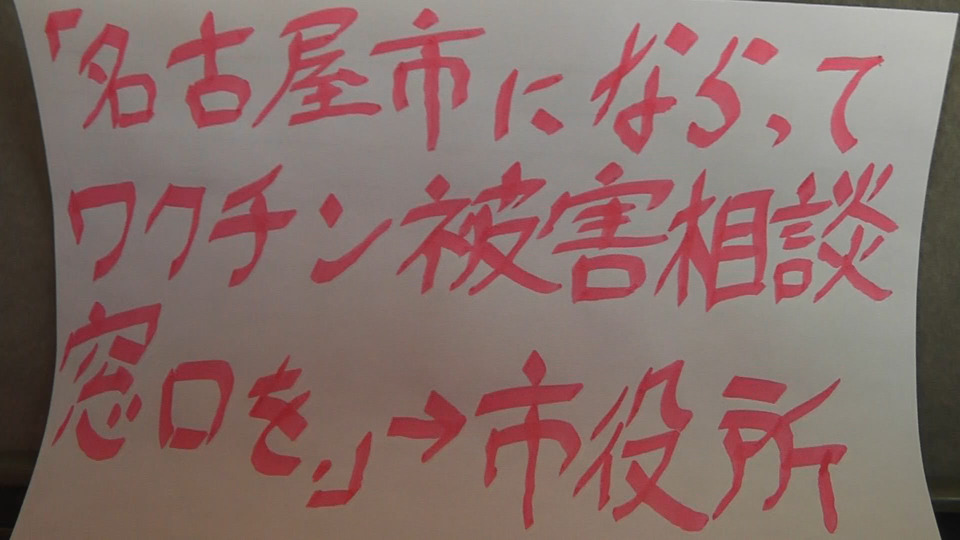 「名古屋市にならって
ワクチン被害相談
窓口を。」→市役所